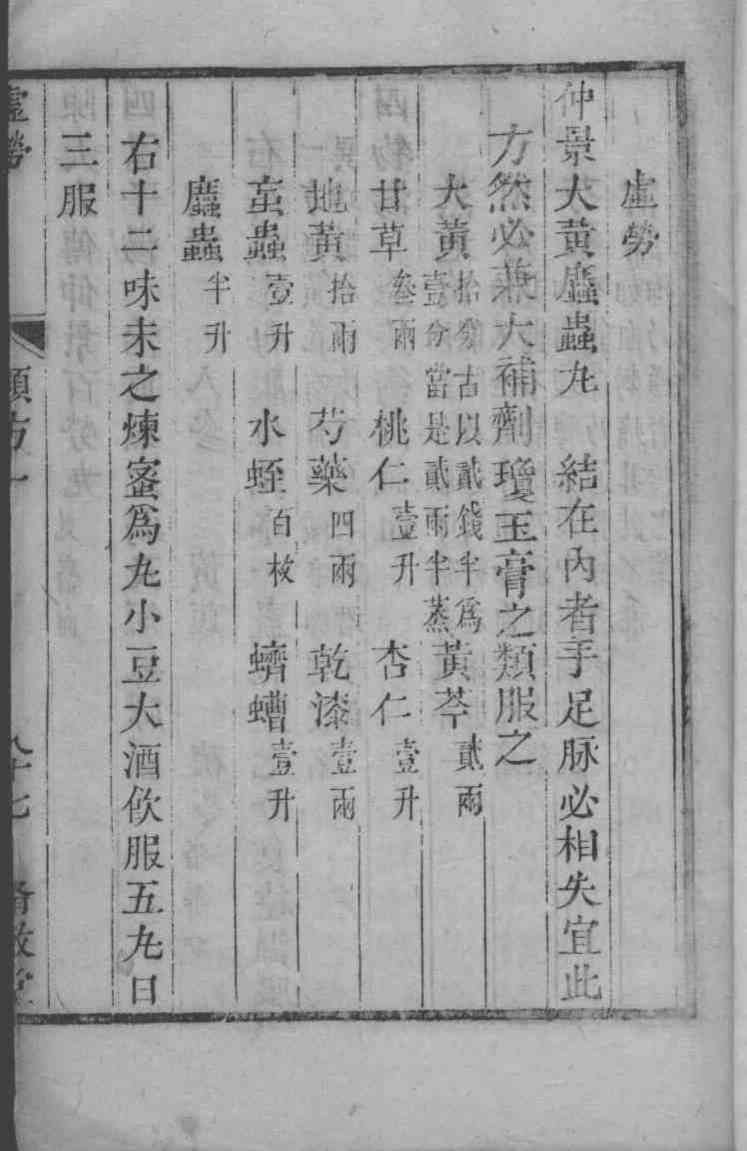 虛勞
仲景大黃䗪蟲丸　結在內者手足脉必相失宜此
方然必兼大補劑瓊玉膏之類服之
大黃拾分古以貳錢半爲壹分當是貳兩半蒸　黃芩貳兩
甘草叁兩　桃仁壹升　杏仁壹升
地黃拾兩　芍藥四兩　乾漆壹兩
䖟蟲壹升　水蛭百枚　蠐螬壹升
䗪蟲半升
右十二味末之煉蜜爲丸小豆大酒飲服五丸日
三服
虛勞　類方一　八十七